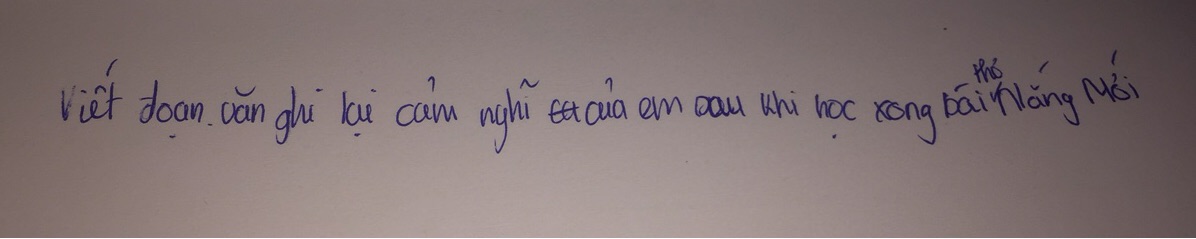 Viết đoạn văn ghi lại cảm nghĩ của em sau khi học xong bài thơ Nắng Mới